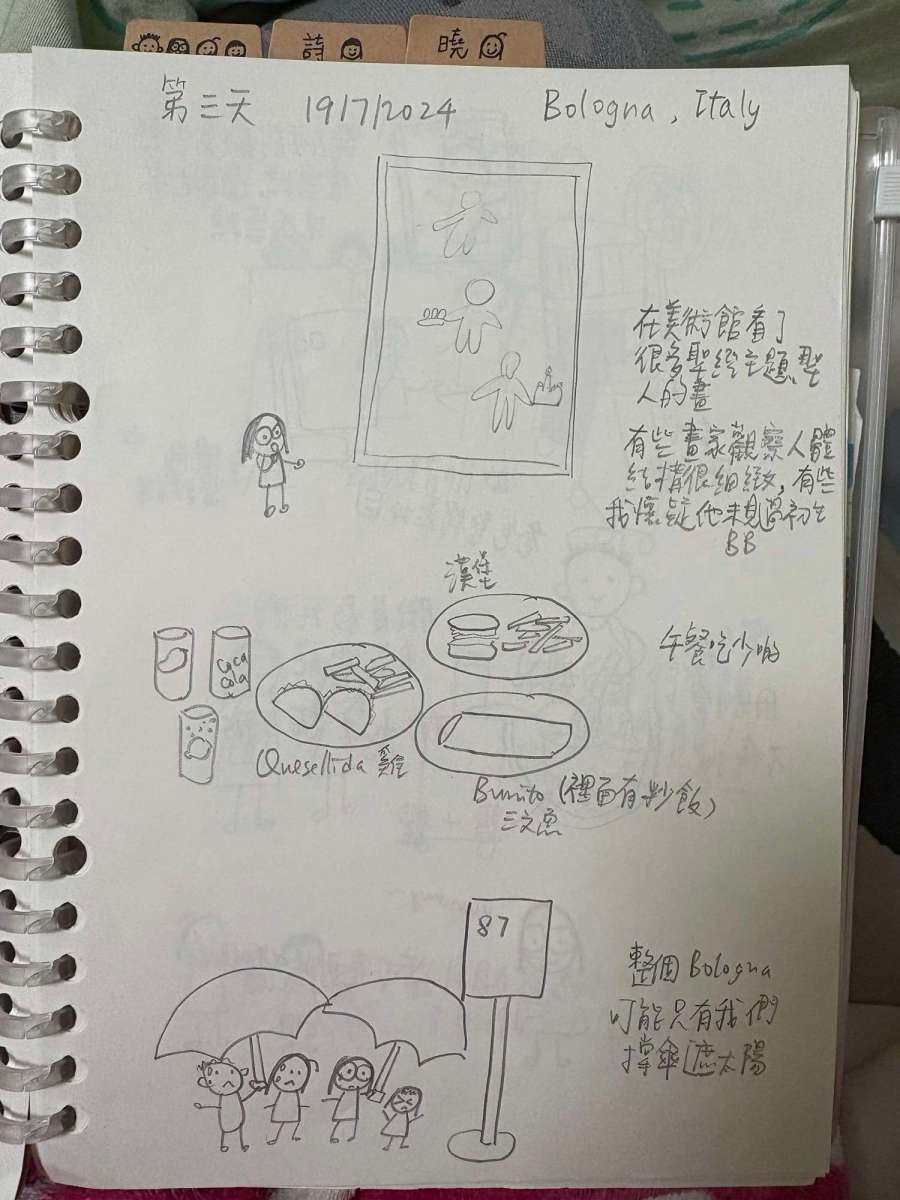 詩
曉
第三天 19/7/2024 Bologna, Italy
在美術館看了
很多聖經主題、聖
人的畫
有些畫家觀察人體
結構很細緻,有些
我懷疑他未見過初生
BB
漢堡
午餐吃少啲
Coca
Cola
Quesellida 雞
Burrito (裡面有炒飯)
三文魚
87
整個 Bologna
可能只有我們
撐傘遮太陽